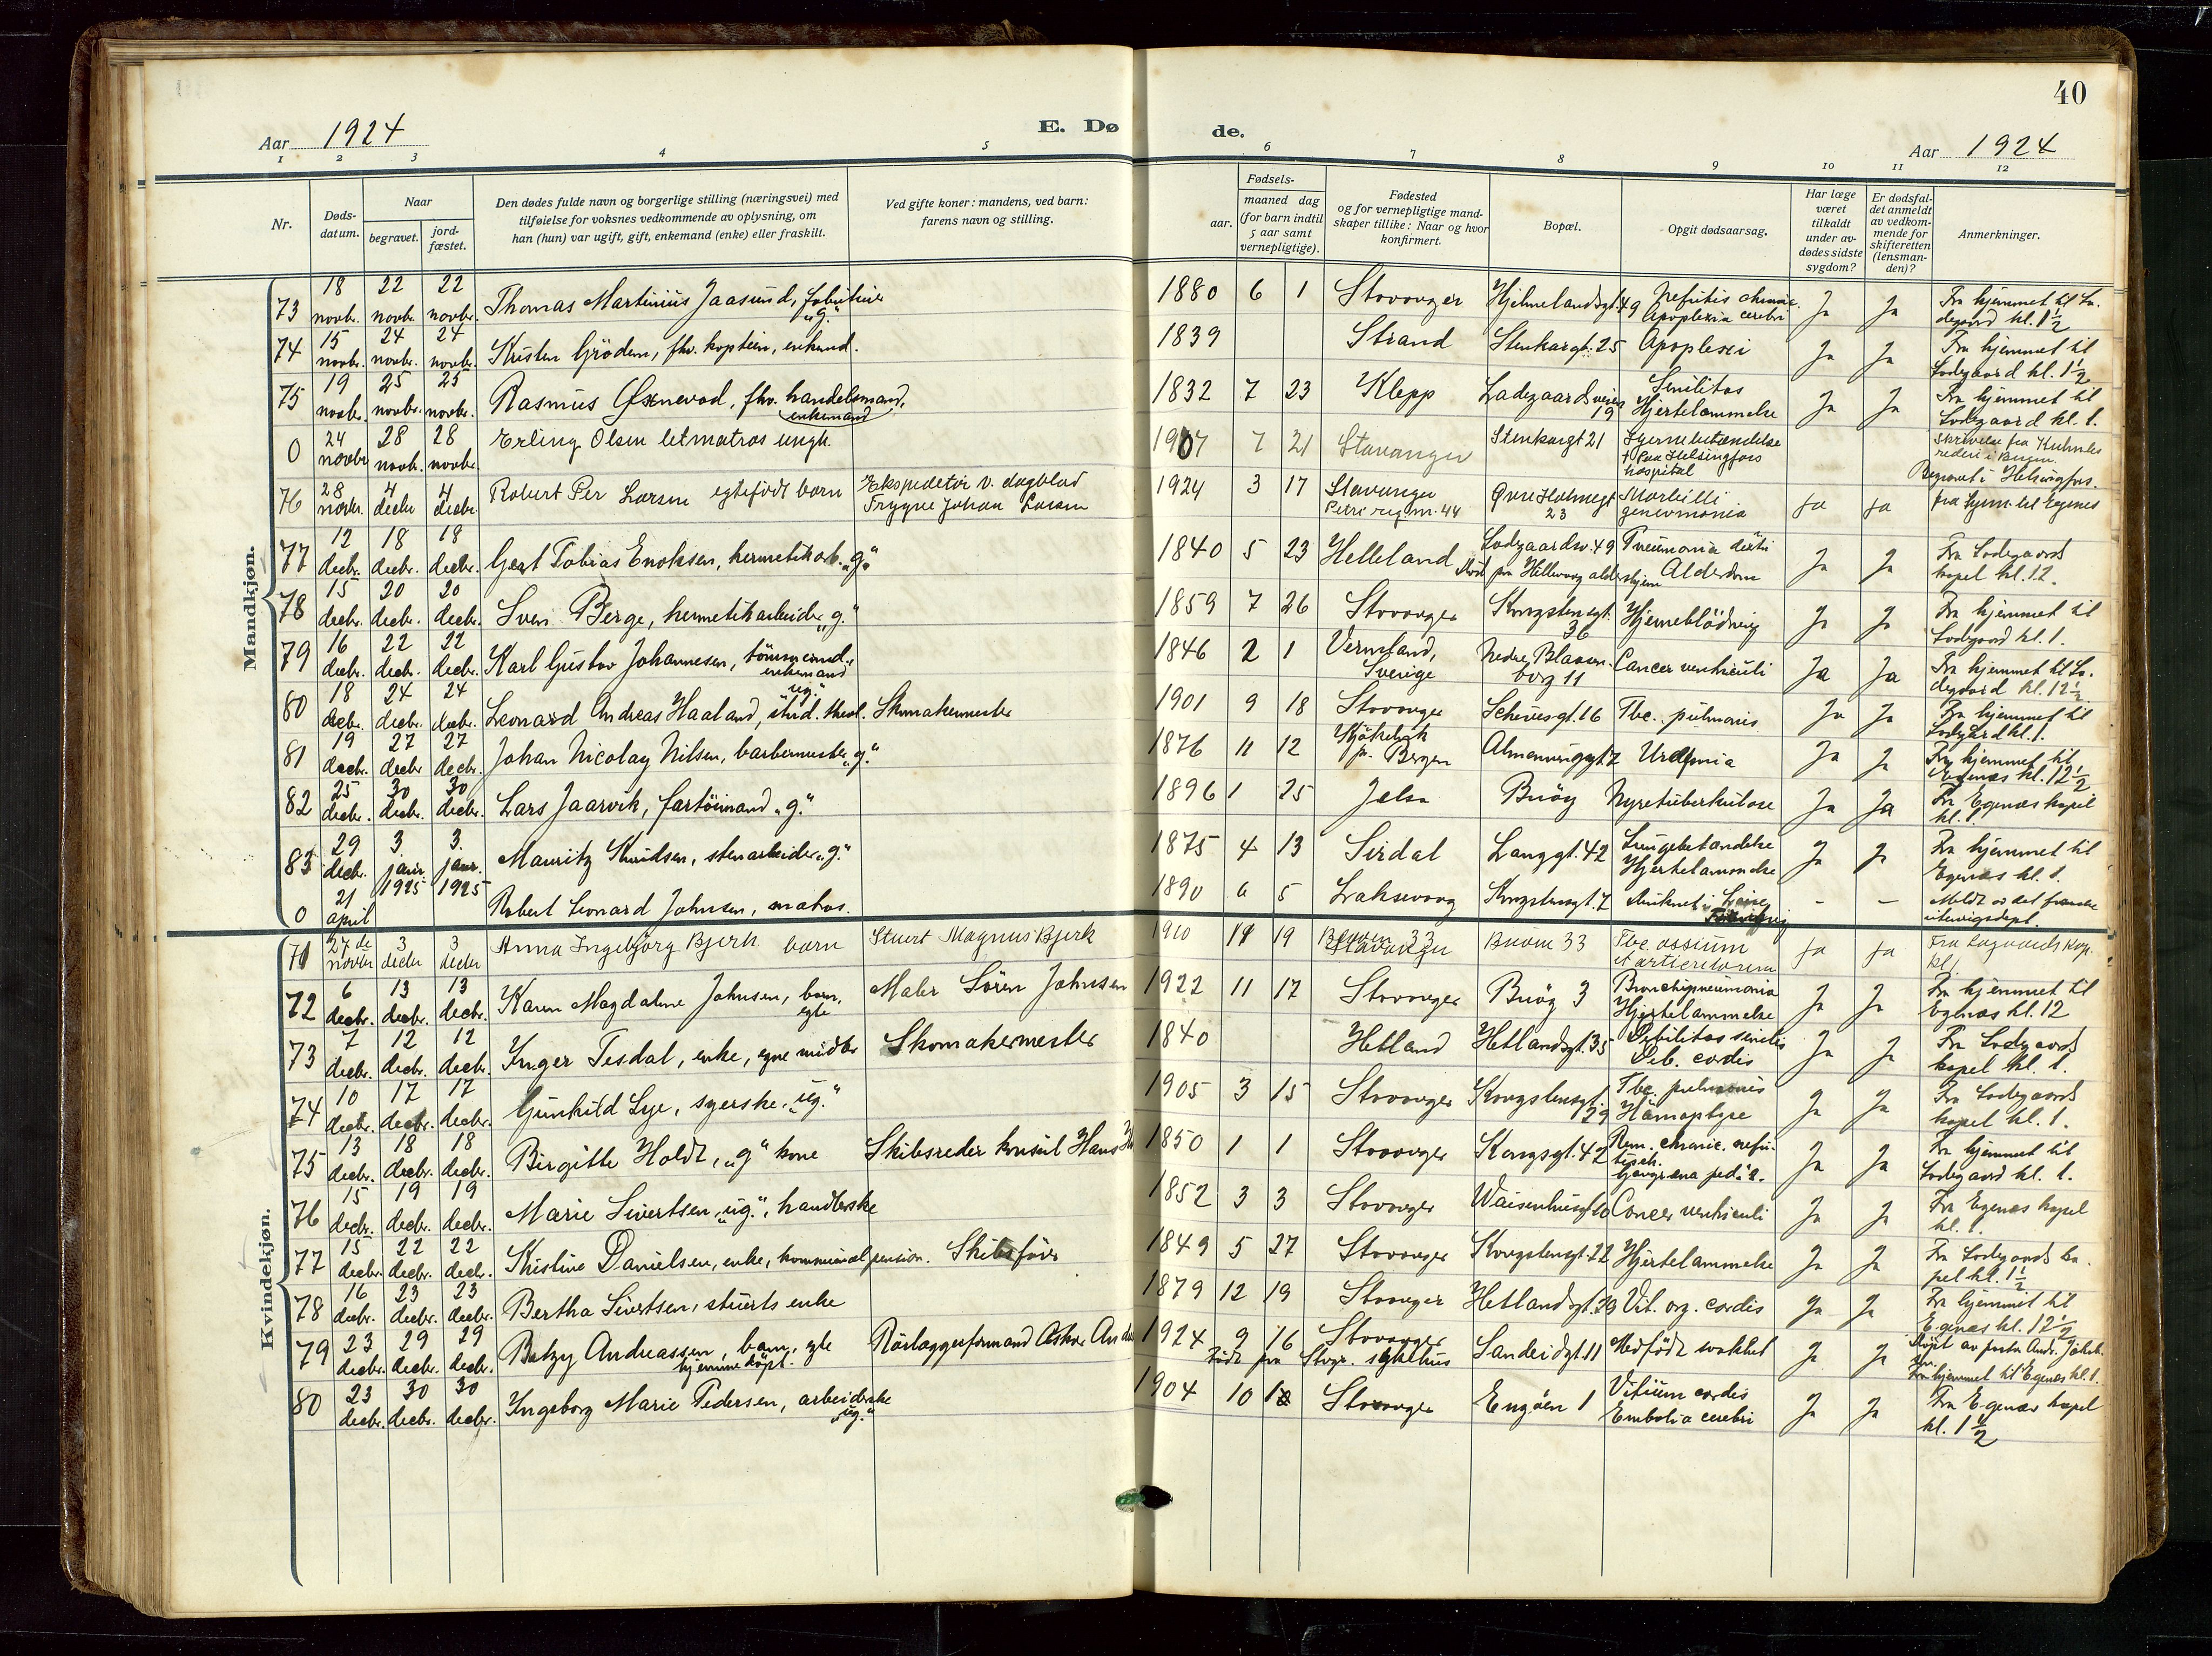 40
Aar 1924 E. Dø de. Aar 1924
1 2 3 4 5 6 7 8 9 10 11 12
Nr.
Døds-
datum.
Naar
begravet.
jord-
fæstet.
Den dødes fulde navn og borgerlige stilling (næringsvei) med
tilføielse for voksnes vedkommende av oplysning, om
han (hun) var ugift, gift, enkemand (enke) eller fraskilt.
Ved gifte koner: mandens, ved barn:
farens navn og stilling.
Fødsels-
aar.
maaned dag
(for barn indtil
5 aar samt
vernepligtige).
Fødested
og for vernepligtige mand-
skaper tillike: Naar og hvor
konfirmert.
Bopæl.
Opgit dødsaarsag.
Har læge
været
tilkaldt
under av-
dødes sidste
sygdom?
Er dødsfal-
det anmeldt
av vedkom-
mende for
skifteretten
(lensman-
den)?
Anmerkninger.
Mandkjøn.
73 18 novbr. 22 novbr. 22 novbr. Thomas Martinius Jaasund, "g." 1880 6 1 Stavanger Hjelmelandsgt. 49 Apoplexia cerebri Ja Ja Fra hjemmet til La-
degaard kl. 1½
74 15 novbr. 24 novbr. 24 novbr. Kristen Grödem, fhv. kaptein, enkemd. 1839 Strand Stenkargt. 25 Apoplexi Ja Ja Fra hjemmet til
Ladegaard kl. 1½
75 19 novbr. 25 novbr. 25 novbr. Rasmus Øxnevad, fhv. handelsmand, enkemand 1832 7 23 Klepp Ladegaardsveien 19 Senilitas Hjertelammelse Ja Ja Fra hjemmet til
Ladegaard kl. 1.
0 24 novbr 28 novbr. 28 novbr. Erling Olsen letmatros ungk. 1907 7 21 Stavanger Stenkargt 21 Hjernebetændelse
† paa Helsingfors
hospital
Skrivelse fra Kuhnles
rederi i Bergen.
Begravet i Helsingfors.
76 28 novbr. 4 decbr 4 decbr. Robert Per Larsen egtefødt barn Ekspeditör v. dagblad
Trygve Johan Larsen 1924 3 17 Stavanger
Petri reg. nr. 44 Øvre Holmegt 23 Morbilli ja ja fra hjem. til Egenes
77 12 decbr. 18 decbr. 18 decbr. Gert Tobias Enoksen, hermetikarb. "g" 1840 5 23 Helleland Ladegaardsv. 49 Pneumonia Alderdom Ja Ja Fra Ladegaards
kapel kl. 12.
78 15 decbr. 20 decbr. 20 decbr. Sven Berge, hermetikarbeider "g." 1859 7 26 Stavanger Kongstensgt. 36 Hjerneblödning Ja Ja Fra hjemmet til
Ladegaard kl. 1.
79 16 decbr. 22 decbr. 22 decbr. Karl Gustav Johannesen, tömmermd., enkemand 1846 2 1 Vermland,
Sverige Nedre Blaasen-
borg 11 Cancer ventriculi Ja Ja Fra hjemmet til La-
degaard kl. 12½
80 18 decbr. 24 decbr. 24 decbr. Leonard Andreas Haaland, "ug." stud. theol. Skomakermester 1901 9 18 Stavanger Schivesgt. 16 Tbc. pulmonis Ja Ja Fra hjemmet til
Ladegrd kl. 1.
81 19 decbr. 27 decbr 27 decbr. Johan Nicolay Nilsen, barbermester, "g." 1876 11 12 pr. Bergen Almenningsgt 7 Urämia Ja Ja Fra hjemmet til
Egenæs kl. 12½
82 25 decbr. 30 decbr. 30 decbr. Lars Jaarvik, fartöimand "g." 1896 1 25 Jelsa Buöy Nyretuberkulose Ja Ja Fra Egenæs kapel
kl. 1.
83 29 decbr. 3 januar 1925 3. januar. 1925 Mauritz Knudsen, stenarbeider "g." 1875 4 13 Sirdal Langgt. 42 Lungebetændelse
Hjertelammelse Ja Ja Fra hjemmet til
Egenæs kl. 1.
0 21 april Robert Leonard Johnsen, matros. 1890 6 5 Laksevaag Kongstensgt. 7 Druknet i Loire - - Meldt av det franske
utenrigsdept.
Kvindekjøn.
71 27de novbr 3 decbr 3 decbr Anna Ingebjörg Bjerk barn Stuert Magnus Bjerk 1910 11 19 Stavanger Buöen 33 Tbc. ossium ja ja Fra Lagaards kap.
kl 1
72 6 decbr. 13 decbr. 13 decbr. Karen Magdalene Johnsen, barn, egte Maler Sören Johnsen 1922 11 17 Stavanger Buöy 3 Bronchopneumonia
Hjertelammelse Ja Ja Fra hjemmet til
Egenæs kl. 12
73 7 decbr. 12 decbr. 12 decbr. Ynger Tesdal, enke, egne midler Skomakermester 1840 Hetland Hetlandsgt. 35 Debilitas senilis
Deb. cordis Ja Ja Fra Ladegaards
kapel kl. 1.
74 10 decbr. 17 decbr. 17 decbr. Gunhild Lye, syerske, "ug." 1905 3 15 Stavanger Kongstensgt. 29 Tbc pulmonis
Hämoptyse Ja Ja Fra Ladegaards
kapel kl. 1.
75 13 decbr. 18 decbr. 18 decbr. Birgitte Holdt, "g" kone Skibsreder konsul Hans 1850 1 1 Stavanger Kongsgt. 42 Gangræna pedis. Ja Ja Fra hjemmet til
Ladegaard kl. 1.
76 15 decbr. 19 decbr. 19 decbr. Marie Sivertsen, "ug.", handlerske 1852 3 3 Stavanger Waisenhusgt Cancer ventriculi Ja Ja Fra Egenæs kapel
kl. 1
77 15 decbr. 22 decbr. 22 decbr. Kristine Danielsen, enke, kommunal pension. Skibsförer 1849 5 27 Stavanger Kongstensgt. 22 Hjertelammelse Ja Ja Fra Ladegaards ka-
pel kl. 1½
78 16 decbr. 23 decbr. 23 decbr. Bertha Sivertsen, stuerts enke 1879 12 19 Stavanger Hetlandsgt. 29 Vit. org. cordis Ja Ja Fra hjemmet til
Egenæs kl. 12½
79 23 decbr. 29 decbr. 29 decbr. Betzy Andreassen, barn, egte
hjemmedöpt. Rörlæggerformand Askar 1924 9 16 Stavanger
Födt paa Stvgr. sykehus Sandeidgt 11 Medfödt svakhet Ja Ja Döpt av pastor Andr. Jakob-
sen.
Fra hjemmet til Egenæs kl. 1.
80 23 decbr. 30 decbr. 30 decbr. Yngeborg Marie Pedersen, arbeiderske "ug." 1904 10 Stavanger Engöen 1 Vitium cordis
Embolia cerebri Ja Ja Fra Egenæs kapel
kl. 1½